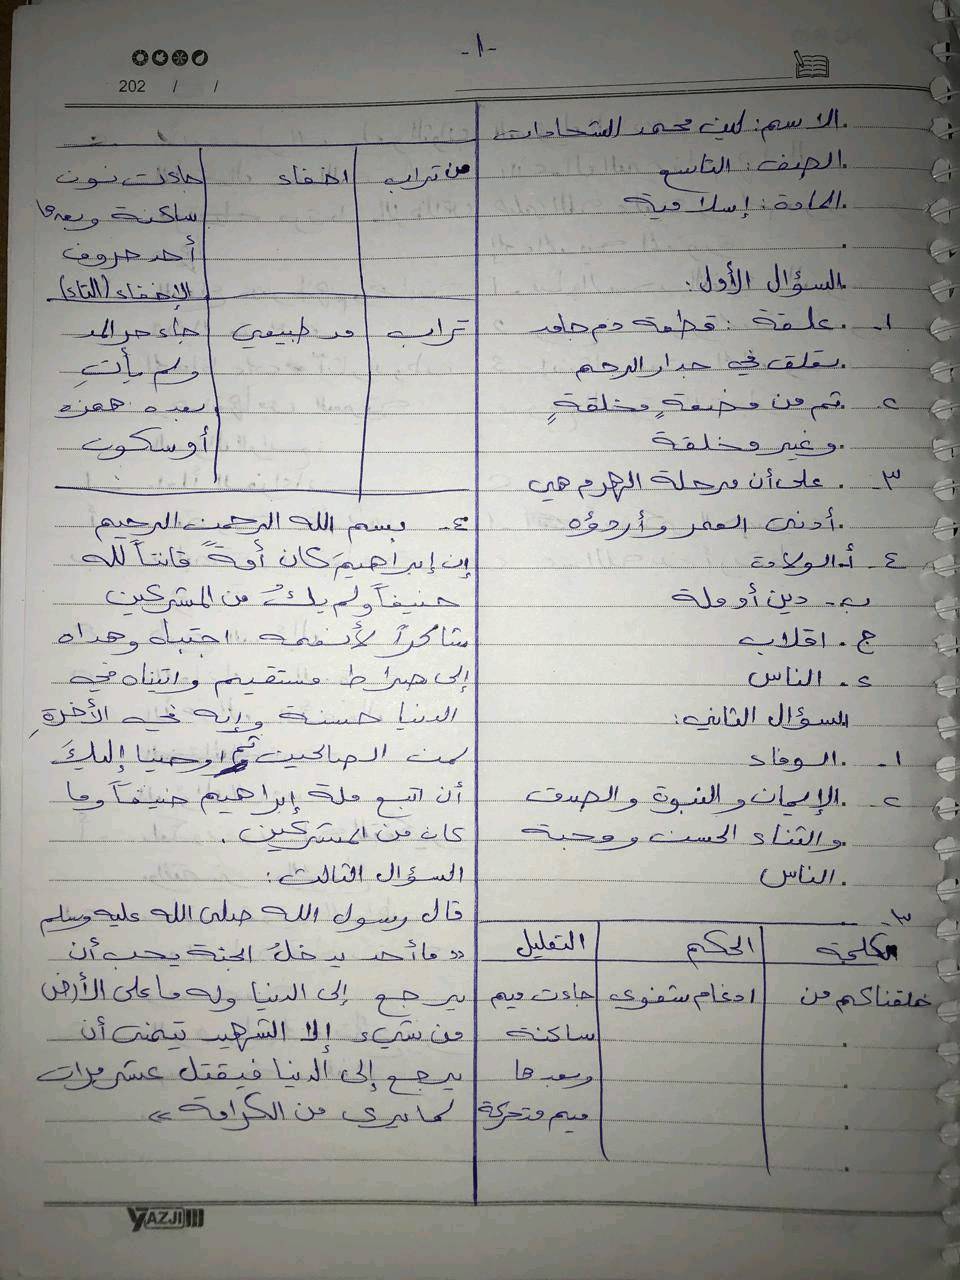 -١-
202 / /
الاسم: لين محمد الشحادات
الصف: التاسع
المادة: إسلامية
السؤال الأول:
١- علقة: قطعة دم جامد
يتعلق في جدار الرحم
٢- ثم من مضغةٍ مخلقةٍ
وغير مخلقة
٣- على أن مرحلة الهرم هي
أدنى العمر وأردؤه
٤- أ. الولادة
ب- دين أو ملة
ج. اقلاب
د. الناس
السؤال الثاني:
١- الوفاء
٢- الإيمان والنبوة والصدق
والثناء الحسن ومحبة
الناس
٣-
الكلمة الحكم التعليل
خلقناكم من ادغام شفوي جاءت ميم
ساكنة
وبعدها
ميم متحركة
من تراب اخفاء جاءت نون
ساكنة وبعدها
أحد حروف
الإخفاء (التاء)
تراب مد طبيعي جاء حر المد
ولم يأتِ
بعده همزه
أو سكون
٤- بسم الله الرحمن الرحيم
إن إبراهيمَ كان أمةً قانتاً لله
حنيفاً ولم يكُ من المشركين
شاكراً لأنعمه اجتباه وهداه
إلى صراط مستقيم واتيناه في
الدنيا حسنة وإنه في الأخرةِ
لمن الصالحين ثم اوحينا إليكَ
أن اتبع ملة إبراهيم حنيفاً وما
كان من المشركين.
السؤال الثالث:
قال رسول الله صلى الله عليه وسلم
«ما أحد يدخلُ الجنة يحب أن
يرجع إلى الدنيا وله ما على الأرض
من شيء إلا الشهيد يتمنى أن
يرجع إلى الدنيا فيقتل عشر مرات
لما يرى من الكرامة»
YAZJI